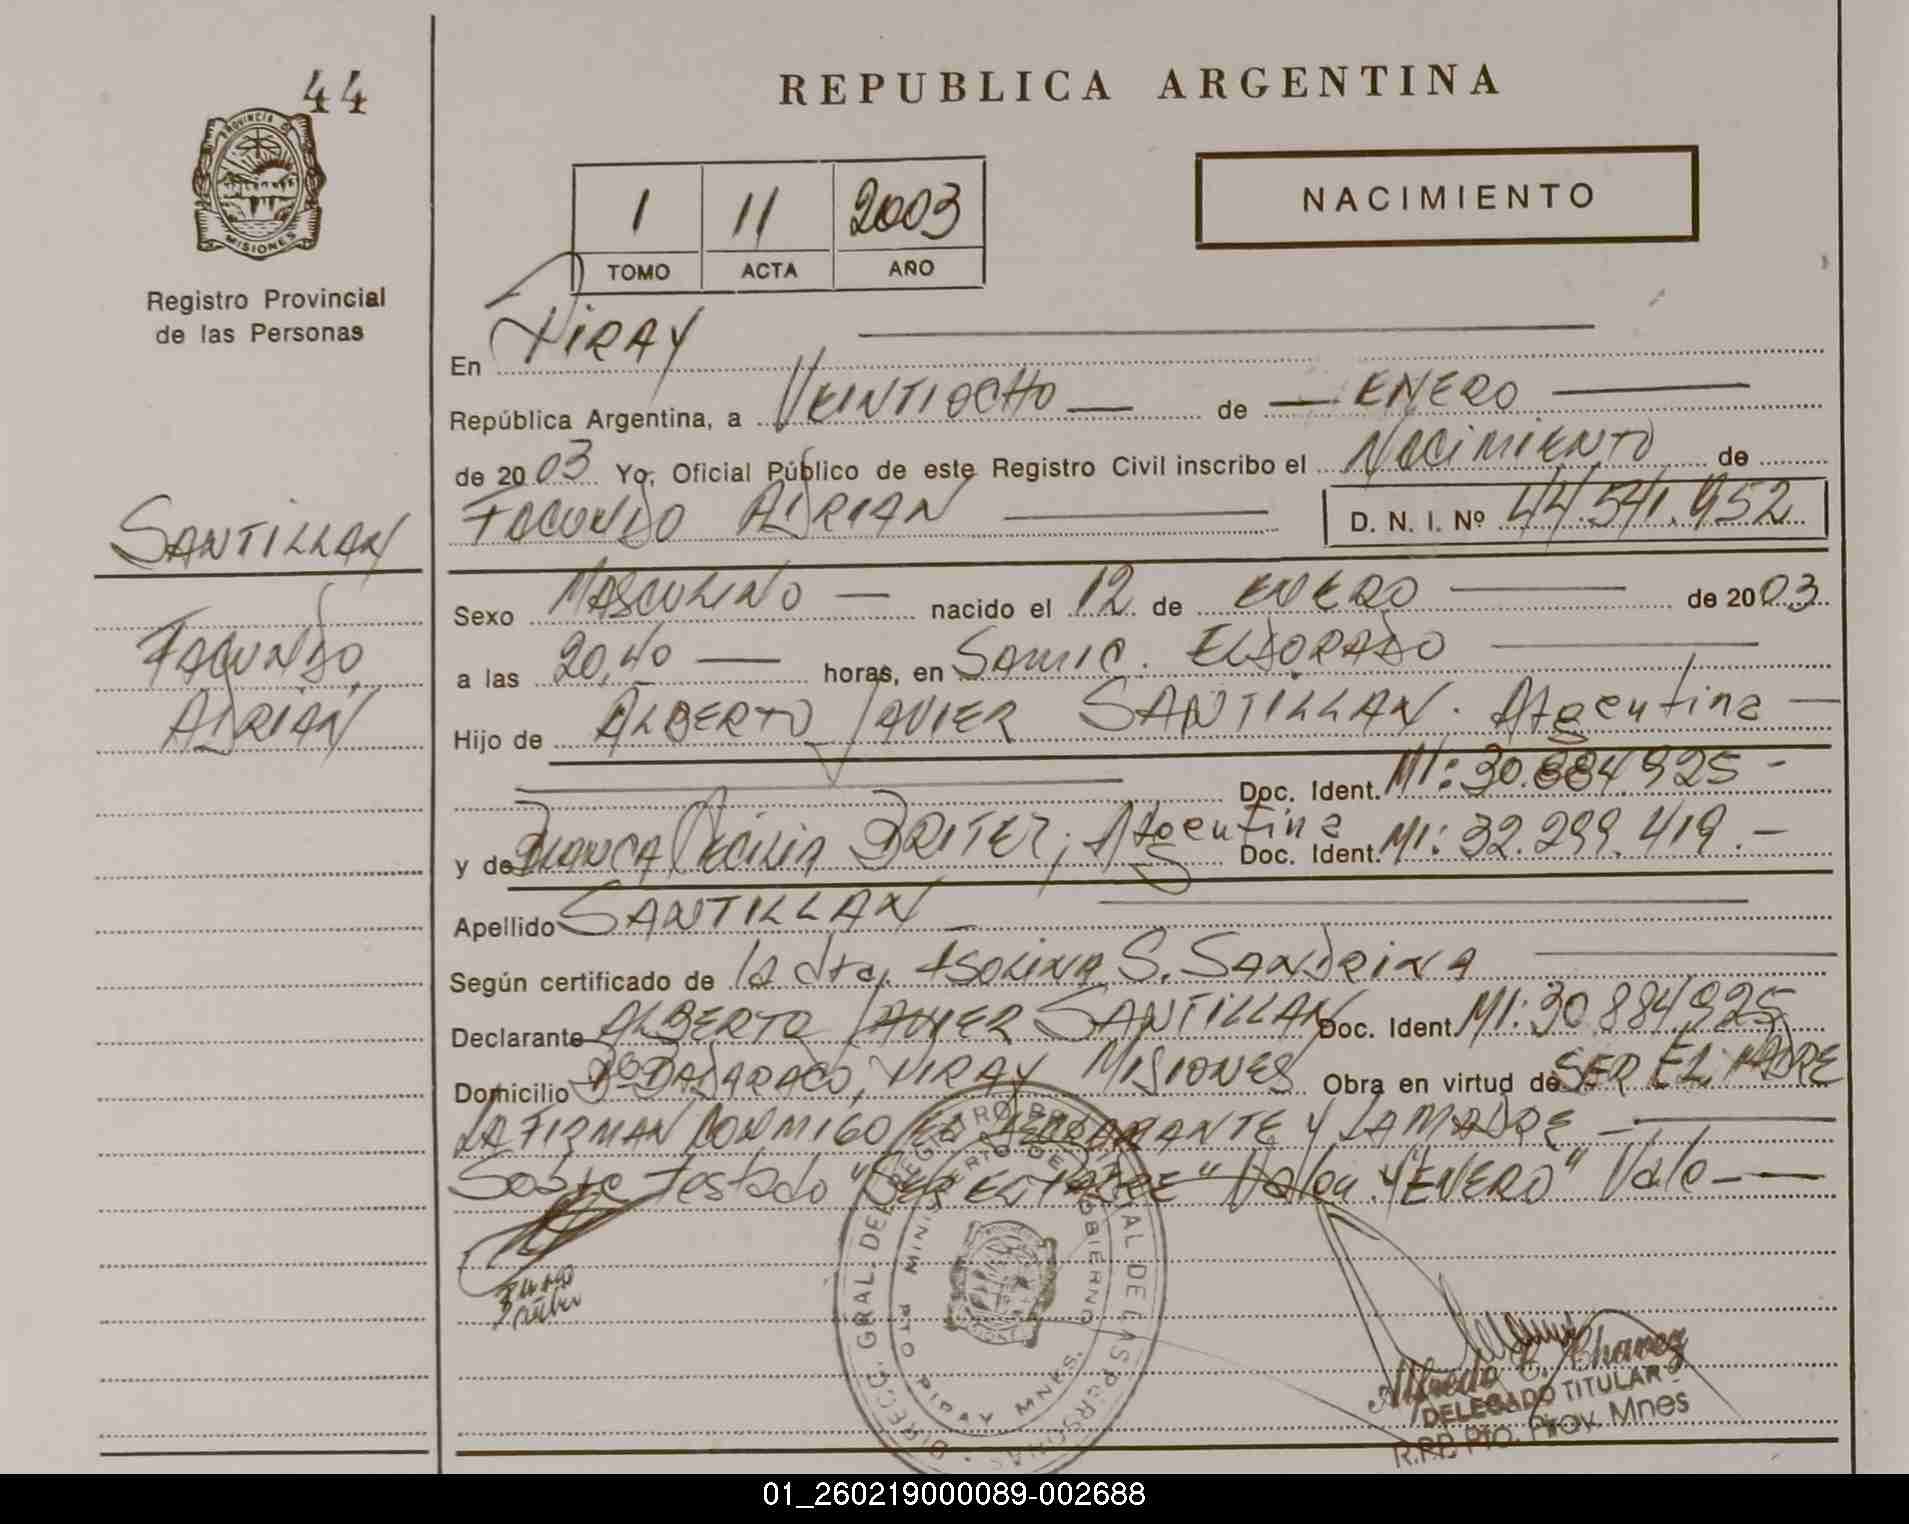 44
PROVINCIA DE
MISIONES
Registro Provincial
de las Personas
SANTILLAN
FACUNDO
ADRIAN
REPUBLICA ARGENTINA
NACIMIENTO
1 11 2003
TOMO ACTA AÑO
En PIRAY
República Argentina, a VEINTIOCHO de ENERO
de 2003 Yo, Oficial Público de este Registro Civil inscribo el NACIMIENTO de
FACUNDO ADRIAN D. N. I. Nº 44.541.952
Sexo MASCULINO nacido el 12 de ENERO de 2003
a las 20,40 horas, en SAMIC. ELDORADO
Hijo de ALBERTO JAVIER SANTILLAN. Argentina
Doc. Ident. MI: 30.884.925-
y de BLANCA CECILIA BRITEZ; Argentina Doc. Ident. MI: 32.299.419.-
Apellido SANTILLAN
Según certificado de la dra. ISOLINA S. SANDRINA
Declarante ALBERTO JAVIER SANTILLAN Doc. Ident. MI: 30884925
Domicilio Bº BADARACO, PIRAY MISIONES Obra en virtud de SER EL PADRE
LA FIRMAN CONMIGO EL DECLARANTE Y LA MADRE
Sobre testado "SER EL PADRE" Valen y "ENERO" Vale
DIRECC. GRAL. DEL REGISTRO PROVINCIAL DE LAS PERSONAS
MINISTERIO DE GOBIERNO
PTO PIRAY MNES.
Alfredo E. Chavez
DELEGADO TITULAR
R.P.P. Pto. Piray. Mnes
01_260219000089-002688